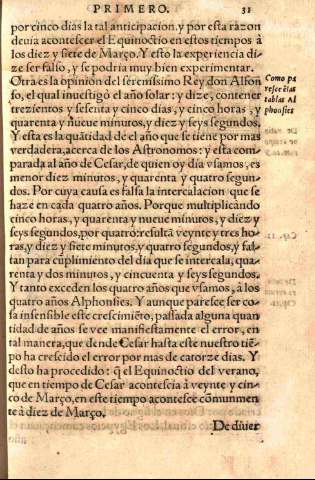 PRIMERO. 31
por cinco dias la tal anticipacion, y por esta razon
deuia acontescer el Equinoctio en estos tiempos à
los diez y siete de Março. Y esto la experiencia di-
ze ser falso, y se podria muy bien experimentar.
Otra es la opinion del serenissimo Rey don Alfon
so, el qual inuestigò el año solar: y dize, contener
trezientos y sesenta y cinco dias, y cinco horas, y
quarenta y nueue minutos, y diez y seys segundos.
Y esta es la quātidad de el año que se tiene por mas
verdadera, acerca de los Astronomos: y esta com-
parada al año de Cesar, de quien oy dia vsamos, es
menor diez minutos, y quarenta y quatro segun-
dos. Por cuya causa es falsa la intercalacion que se
haze en cada quatro años. Porque multiplicādo
cinco horas, y quarenta y nueue minutos, y diez y
seys segundos, por quatro: resultā veynte y tres ho-
ras, y diez y siete minutos, y quatro segundos, y fal-
tan para cūplimiento del dia que se intercala, qua-
renta y dos minutos, y cincuenta y seys segundos.
Y tanto exceden los quatro años que vsamos, à los
quatro años Alphonsies. Y aunque paresce ser co-
sa insensible este crescimiēto, passada alguna quan
tidad de años se vee manifiestamente el error, en
tal manera, que dende Cesar hasta este nuestro tiē-
po ha crescido el error por mas de catorze dias. Y
desto ha procedido: q̃ el Equinoctio del verano,
que en tiempo de Cesar acontescia à veynte y cin-
co de Março, en este tiempo acontesce cōmunmen
te à diez de Março.
De diuer
Como pa
resce ē las
tablas Al
phonsies